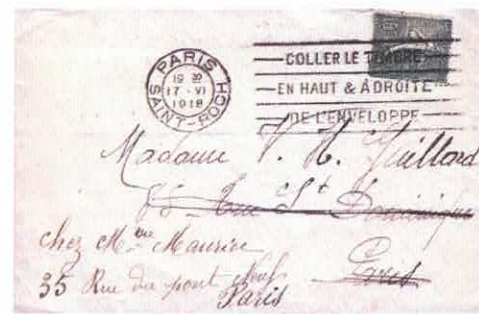 PARIS
19 30
17 - VI
1918
SAINT-ROCH
COLLER LE TIMBRE
EN HAUT & À DROITE
DE L'ENVELOPPE
Madame V. H. Guillard
Rue St Dominique
Paris
chez Mme Maurice
35 Rue du pont Neuf
Paris